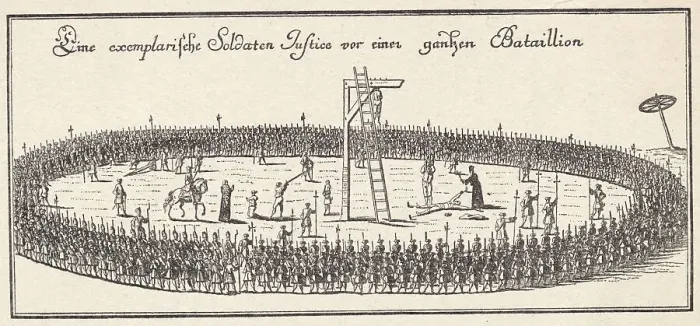 Eine exemplarische Soldaten Justice vor einer gantzen Bataillion